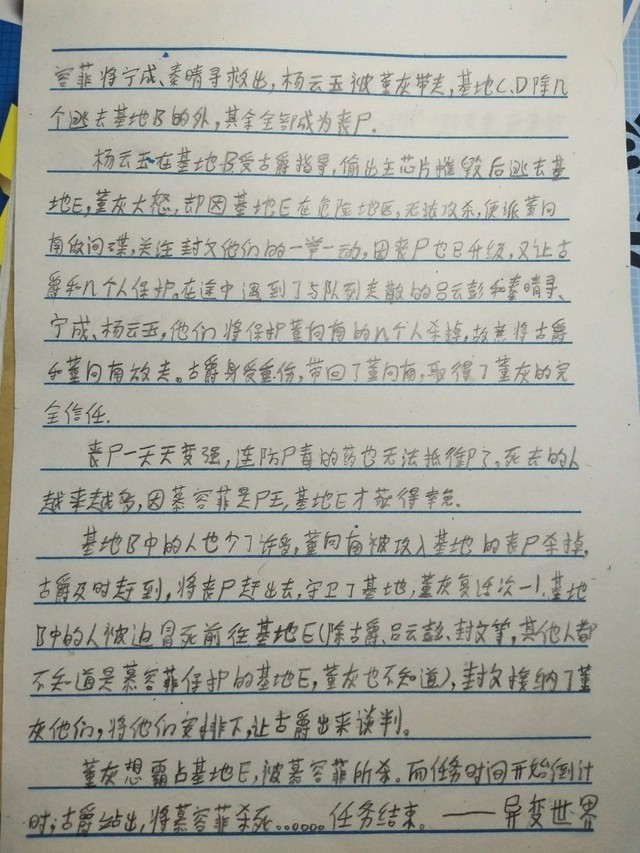 容菲将宁成、秦晴寻救出，杨云玉被董灰带走，基地C、D除几
个逃去基地B的外，其余全部成为丧尸.
杨云玉在基地B受古爵指导，偷出主芯片摧毁后逃去基
地E，董灰大怒，却因基地E在危险地区，无法攻杀，便派董向
南做间谍，关注封文他们的一举一动，因丧尸也已升级，又让古
爵和几个人保护。在途中遇到了与队列走散的吕云彭和秦晴寻、
宁成、杨云玉，他们将保护董向南的几个人杀掉，故意将古爵
和董向南放走。古爵身受重伤，带回了董向南，取得了董灰的完
全信任.
丧尸一天天变强，连防尸毒的药也无法抵御了。死去的人
越来越多，因慕容菲是尸王，基地E才获得幸免.
基地B中的人也少了许多，董向南被攻入基地的丧尸杀掉，
古爵及时赶到，将丧尸赶出去，守卫了基地，董灰复活次一1.基地
B中的人被迫冒死前往基地E(除古爵、吕云彭、封文等，其他人都
不知道是慕容菲保护的基地E，董灰也不知道)，封文接纳了董
灰他们，将他们安排下，让古爵出来谈判。
董灰想霸占基地E，被慕容菲所杀.而任务时间开始倒计
时；古爵站出，将慕容菲杀死……任务结束。——异变世界